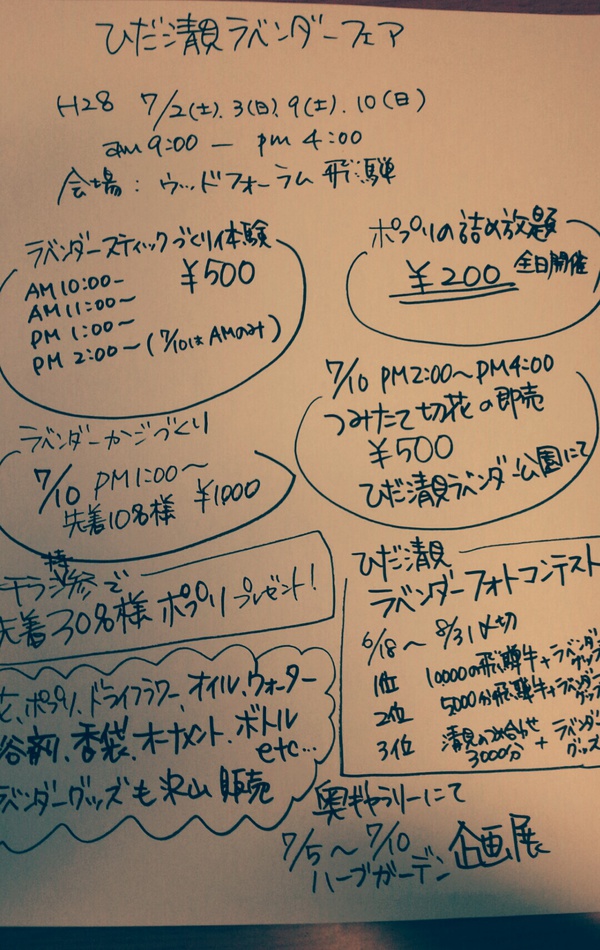 ひだ清見ラベンダーフェア
H28 7/2(土).3(日).9(土).10(日)
am 9:00 — pm 4:00
会場: ウッドフォーラム飛騨
ラベンダースティックづくり体験
¥500
AM10:00~
AM11:00~
PM 1:00~
PM 2:00~(7/10はAMのみ)
ポプリの詰め放題
¥200 全日開催
7/10 PM2:00~PM4:00
つみたて切花の即売
¥500
ひだ清見ラベンダー公園にて
ラベンダーかごづくり
7/10 PM1:00~
先着10名様 ¥1000
チラシ持参で
先着30名様 ポプリプレゼント!
ひだ清見
ラベンダーフォトコンテスト
6/18~8/31〆切
1位 10000の飛騨牛+ラベンダーグッズ
2位 5000分飛騨牛+ラベンダーグッズ
3位 清見の詰合せ3000分+ラベンダーグッズ
花、ポプリ、ドライフラワー、オイル、ウォーター
浴剤、香袋、オーナメント、ボトル
etc...
ラベンダーグッズも沢山販売
奥ギャラリーにて
7/5~7/10
ハーブガーデン企画展